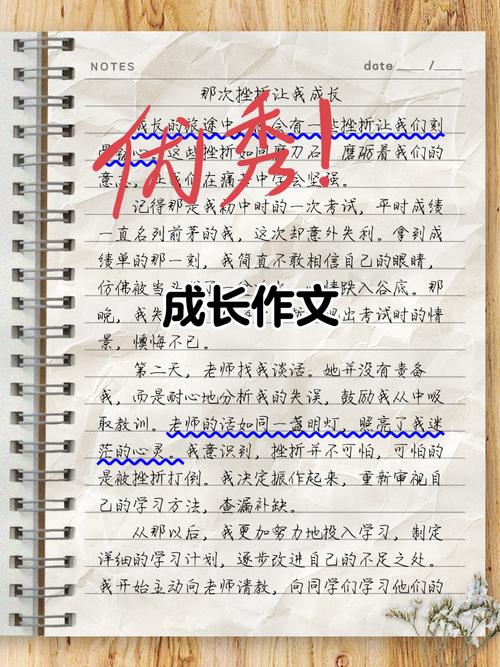 NOTES
date /
那次挫折让我成长
优秀!
成长的旅途中 会有 挫折让我们刻
骨铭心 这些挫折如同磨刀石 磨砺着我们的
意志 让我们在痛苦中学会坚强。
记得那是我初中时的一次考试,平时成绩
一直名列前茅的我,这次却意外失利。拿到成
绩单的那一刻,我简直不敢相信自己的眼睛,
仿佛被当头 了一 情跌入谷底。那
成长作文
晚,我失 出考试时的情
景,懊悔不已。
第二天,老师找我谈话。她并没有责备
我,而是耐心地分析我的失误,鼓励我从中吸
取教训。老师的话如同一盏明灯,照亮了我迷
茫的心灵。我意识到,挫折并不可怕,可怕的
是被挫折打倒。我决定振作起来,重新审视自
己的学习方法,查漏补缺。
从那以后,我更加努力地投入学习,制定
详细的学习计划,逐步改进自己的不足之处。
我开始主动向老师请教,向同学们学习他们的